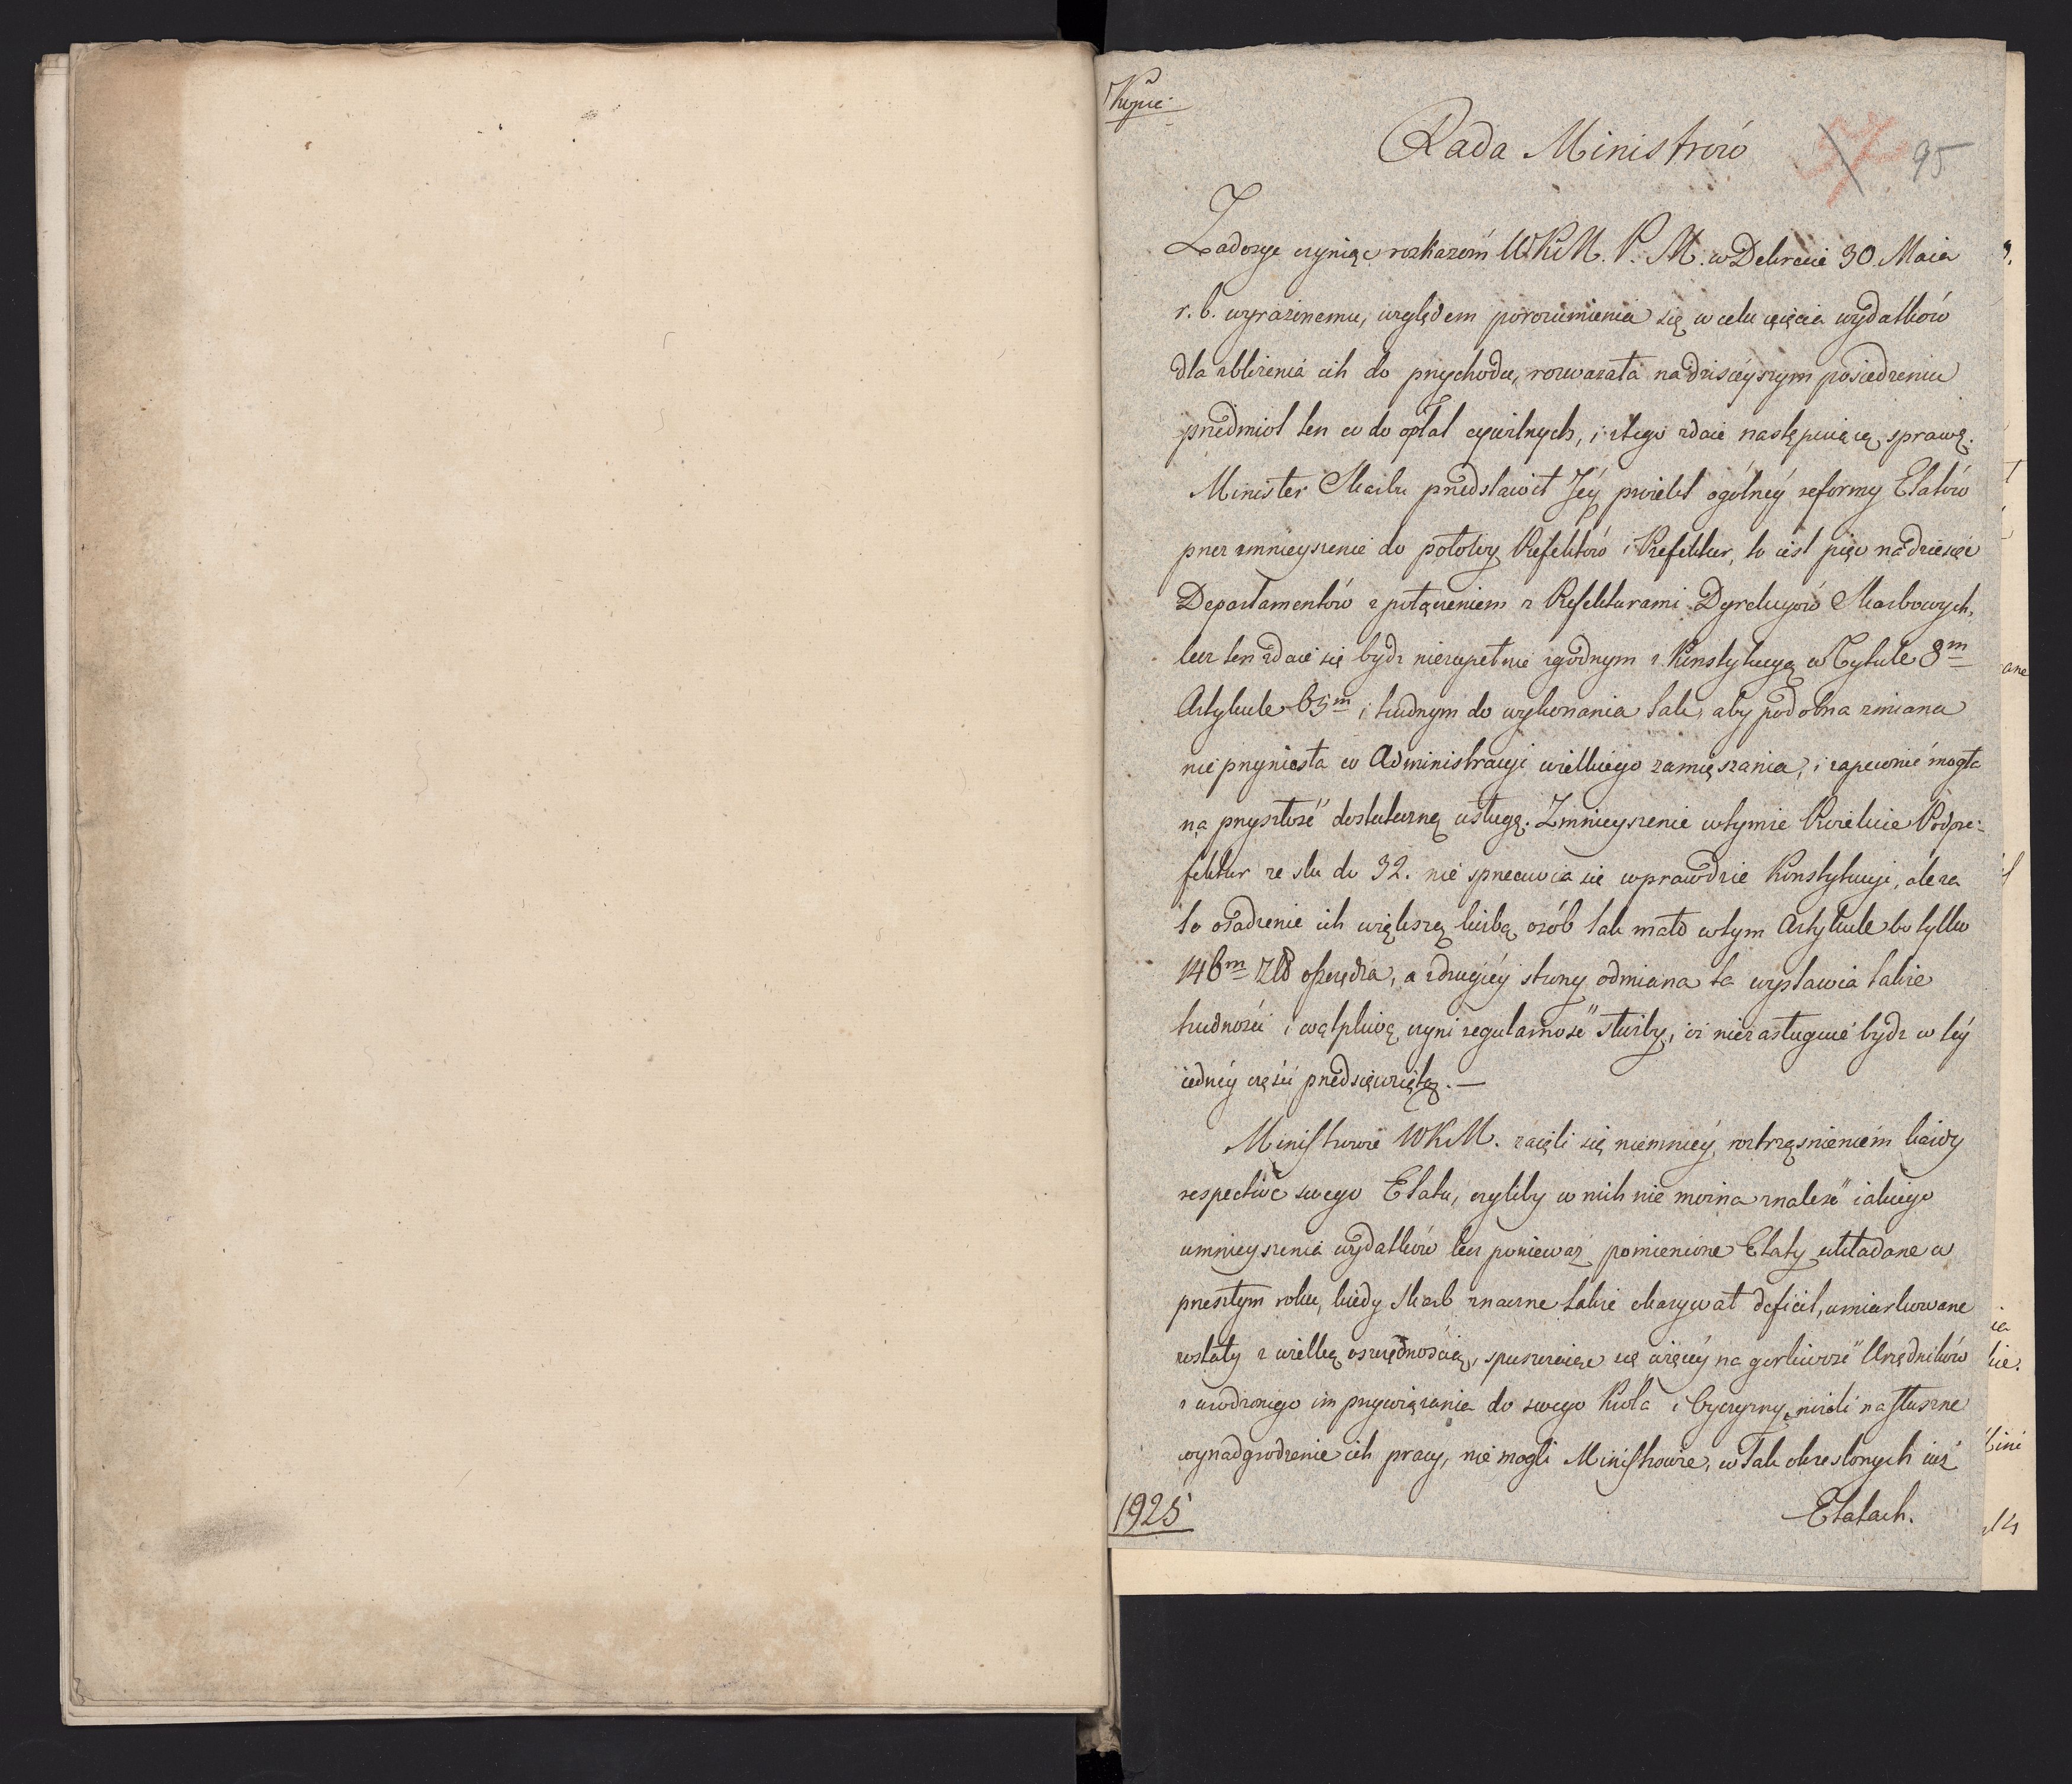 Kopie
Rada Ministrów
95
Zadosyć czyniąc rozkazom WKM. P. M. w Dekrecie 30 Maia
r. b. wyrażonemu, względem porozumienia się w celu ujęcia wydatków
dla zbliżenia ich do przychodu, rozważała na dzisieyszym posiedzeniu
przedmiot ten co do opłat cywilnych, i z tego zdaie następuiącą sprawę.
Minister Skarbu przedstawił Jéy proiekt ogólnéy reformy Etatów
przez zmnieyszenie do połowy Prefektów i Prefektur, to iest pięć na dziesięć
Departamentów z połączeniem z Prefekturami Dyrekcyów Skarbowych,
lecz ten zdaie się bydź niezupełnie zgodnym z Konstytucyą w Tytule 8m
Artykule 65m i trudnym do wykonania tak, aby podobna zmiana
nie przyniosła w Administracyi wielkiego zamięszania, i zapewnić mogła
na przyszłość dostateczną usługę. Zmnieyszenie w tymże Proiekcie Podpre-
fektur ze stu do 32. nie sprzeciwia się wprawdzie Konstytucyi, ale za
to osadzenie ich większą liczbą osób tak mało w tym Artykule bo tylko
146m Zł oszczędza, a z drugiéy strony odmiana ta wystawia takie
trudności i wątpliwą czyni regularność służby, iż nie zasługuie bydź w téy
iednéy części przedsięwziętą. —
Ministrowie WKM. zaięli się niemniéy roztrząśnieniem każdy
respective swego Etatu, czyliby w nich nie można znaleść iakiego
umnieyszenia wydatków lecz ponieważ pomienione Etaty układane w
przeszłym roku, kiedy Skarb znaczne także okazywał deficit, umiarkowane
zostały z wielką oszczędnością, spuszczaiąc się więcéy na gorliwość Urzędników
z wrodzonego im przywiązania do swego Króla i Oyczyzny, niżeli na słuszne
wynadgrodzenie ich pracy, nie mogli Ministrowie, w tak okreslonych iuż
1925
Etatach.